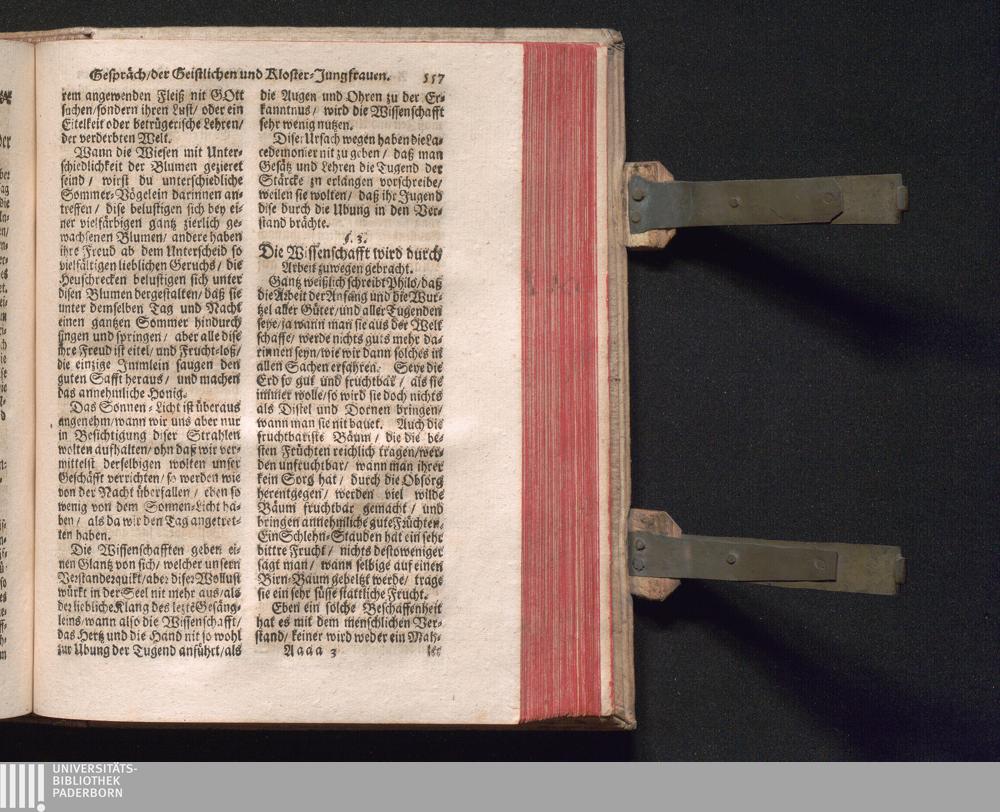 Gespräch/der Geistlichen und Kloster-Jungfrauen. 557
rem angewenden Fleiß nit GOtt
suchen/sondern ihren Lust/ oder ein
Eitelkeit oder betrügerische Lehren/
der verderbten Welt.
Wann die Wiesen mit Unter-
schiedlichkeit der Blumen gezieret
seind/ wirst du unterschiedliche
Sommer-Vögelein darinnen an-
treffen/ dise belustigen sich bey ei-
ner vielfärbigen gantz zierlich ge-
wachsenen Blumen/ andere haben
ihre Freud ab dem Unterscheid so
vielfältigen lieblichen Geruchs/ die
Heuschrecken belustigen sich unter
disen Blumen dergestalten/ daß sie
unter demselben Tag und Nacht
einen gantzen Sommer hindurch
singen und springen/ aber alle dise
ihre Freud ist eitel/ und Frucht-loß/
die einzige Immlein saugen den
guten Safft heraus/ und machen
das annehmliche Honig.
Das Sonnen-Licht ist überaus
angenehm/wann wir uns aber nur
in Besichtigung diser Strahlen
wolten aufhalten/ ohn daß wir ver-
mittelst derselbigen wolten unser
Geschäfft verrichten/ so werden wie
von der Nacht überfallen/ eben so
wenig von dem Sonnen-Licht ha-
ben/ als da wir den Tag angetret-
ten haben.
Die Wissenschafften geben ei-
nen Glantz von sich/ welcher unsern
Verstand erquikt/aber diser Wollust
würkt in der Seel nit mehr aus/als
der liebliche Klang des lezte Gesäng-
leins/wann also die Wissenschafft/
das Hertz und die Hand nit so wohl
zur Ubung der Tugend anführt/als
die Augen und Ohren zu der Er-
kanntnus/ wird die Wissenschafft
sehr wenig nutzen.
Diser Ursach wegen haben die La-
cedemonier nit zu geben/ daß man
Gesätz und Lehren die Tugend der
Stärcke zu erlangen vorschreibe/
weilen sie wolten/ daß ihr Jugend
dise durch die Ubung in den Ver-
stand brächte.
§. 3.
Die Wissenschafft wird durch
Arbeit zuwegen gebracht.
Gantz weißlich schreibt Philo/daß
die Arbeit der Anfang und die Wur-
tzel aller Güter/und aller Tugenden
seye/ja wann man sie aus der Welt
schaffe/ werde nichts guts mehr da-
rinnen seyn/wie wir dann solches in
allen Sachen erfahren. Seye die
Erd so gut und fruchtbar/ als sie
immer wolle/so wird sie doch nichts
als Distel und Dornen bringen/
wann man sie nit bauet. Auch die
fruchtbariste Bäum/ die die be-
sten Früchten reichlich tragen/wer-
den unfruchtbar/ wann man ihrer
kein Sorg hat/ durch die Obsorg
herentgegen/ werden viel wilde
Bäum fruchtbar gemacht/ und
bringen annehmliche gute Früchten.
Ein Schlehn-Stauden hat ein sehr
bittre Frucht/ nichts destoweniger
sagt man/ wann selbige auf einen
Birn-Baum gebeltzt werde/ trage
sie ein sehr süsse stattliche Frucht.
Eben ein solche Beschaffenheit
hat es mit dem menschlichen Ver-
stand/ keiner wird weder ein Mah-
Aaaa 3
ler
UNIVERSITÄTS-
BIBLIOTHEK
PADERBORN